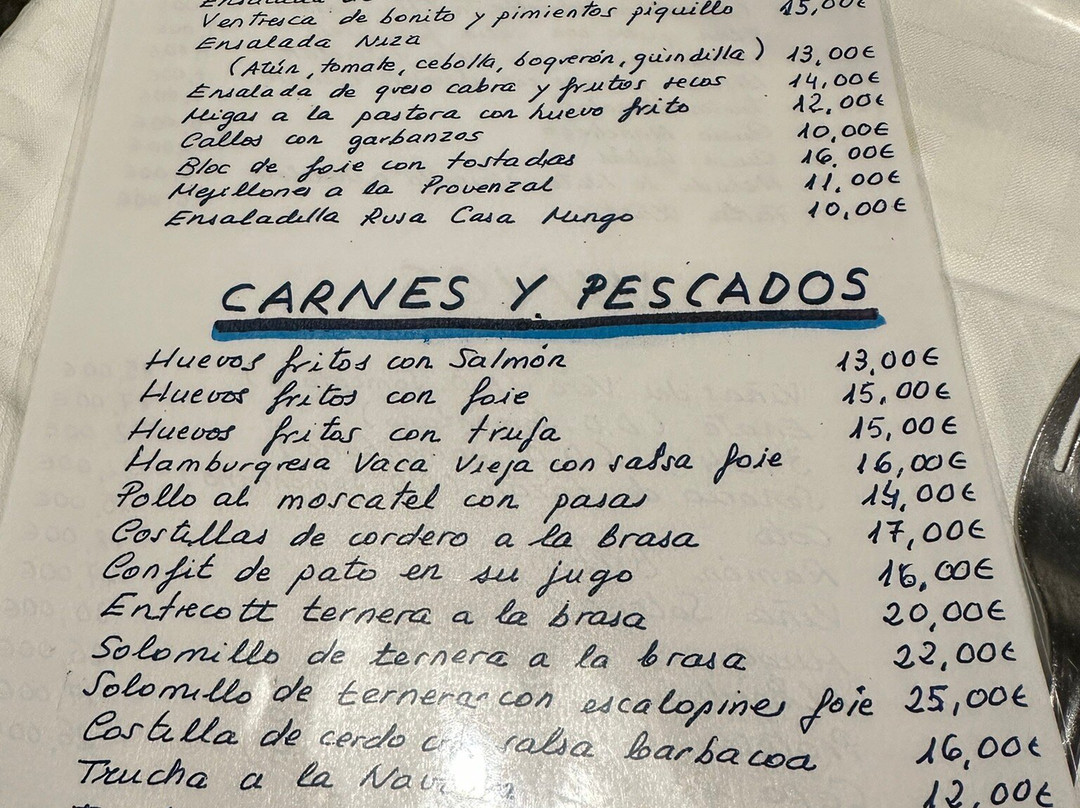 Ensalada de
Ventresca de bonito y pimientos piquillo 15,00€
Ensalada Niza
(Atún, tomate, cebolla, boquerón, guindilla) 13,00€
Ensalada de queso cabra y frutos secos 14,00€
Migas a la pastora con huevo frito 12,00€
Callos con garbanzos 10,00€
Bloc de foie con tostadas 16,00€
Mejillones a la Provenzal 11,00€
Ensaladilla Rusa Casa Mingo 10,00€
CARNES Y PESCADOS
Huevos fritos con Salmón 13,00€
Huevos fritos con foie 15,00€
Huevos fritos con trufa 15,00€
Hamburgresa Vaca Vieja con salsa foie 16,00€
Pollo al moscatel con pasas 14,00€
Costillas de cordero a la brasa 17,00€
Confit de pato en su jugo 16,00€
Entrecott ternera a la brasa 20,00€
Solomillo de ternera a la brasa 22,00€
Solomillo de ternera con escalopines foie 25,00€
Costilla de cerdo con salsa barbacoa 16,00€
Trucha a la 12,00€